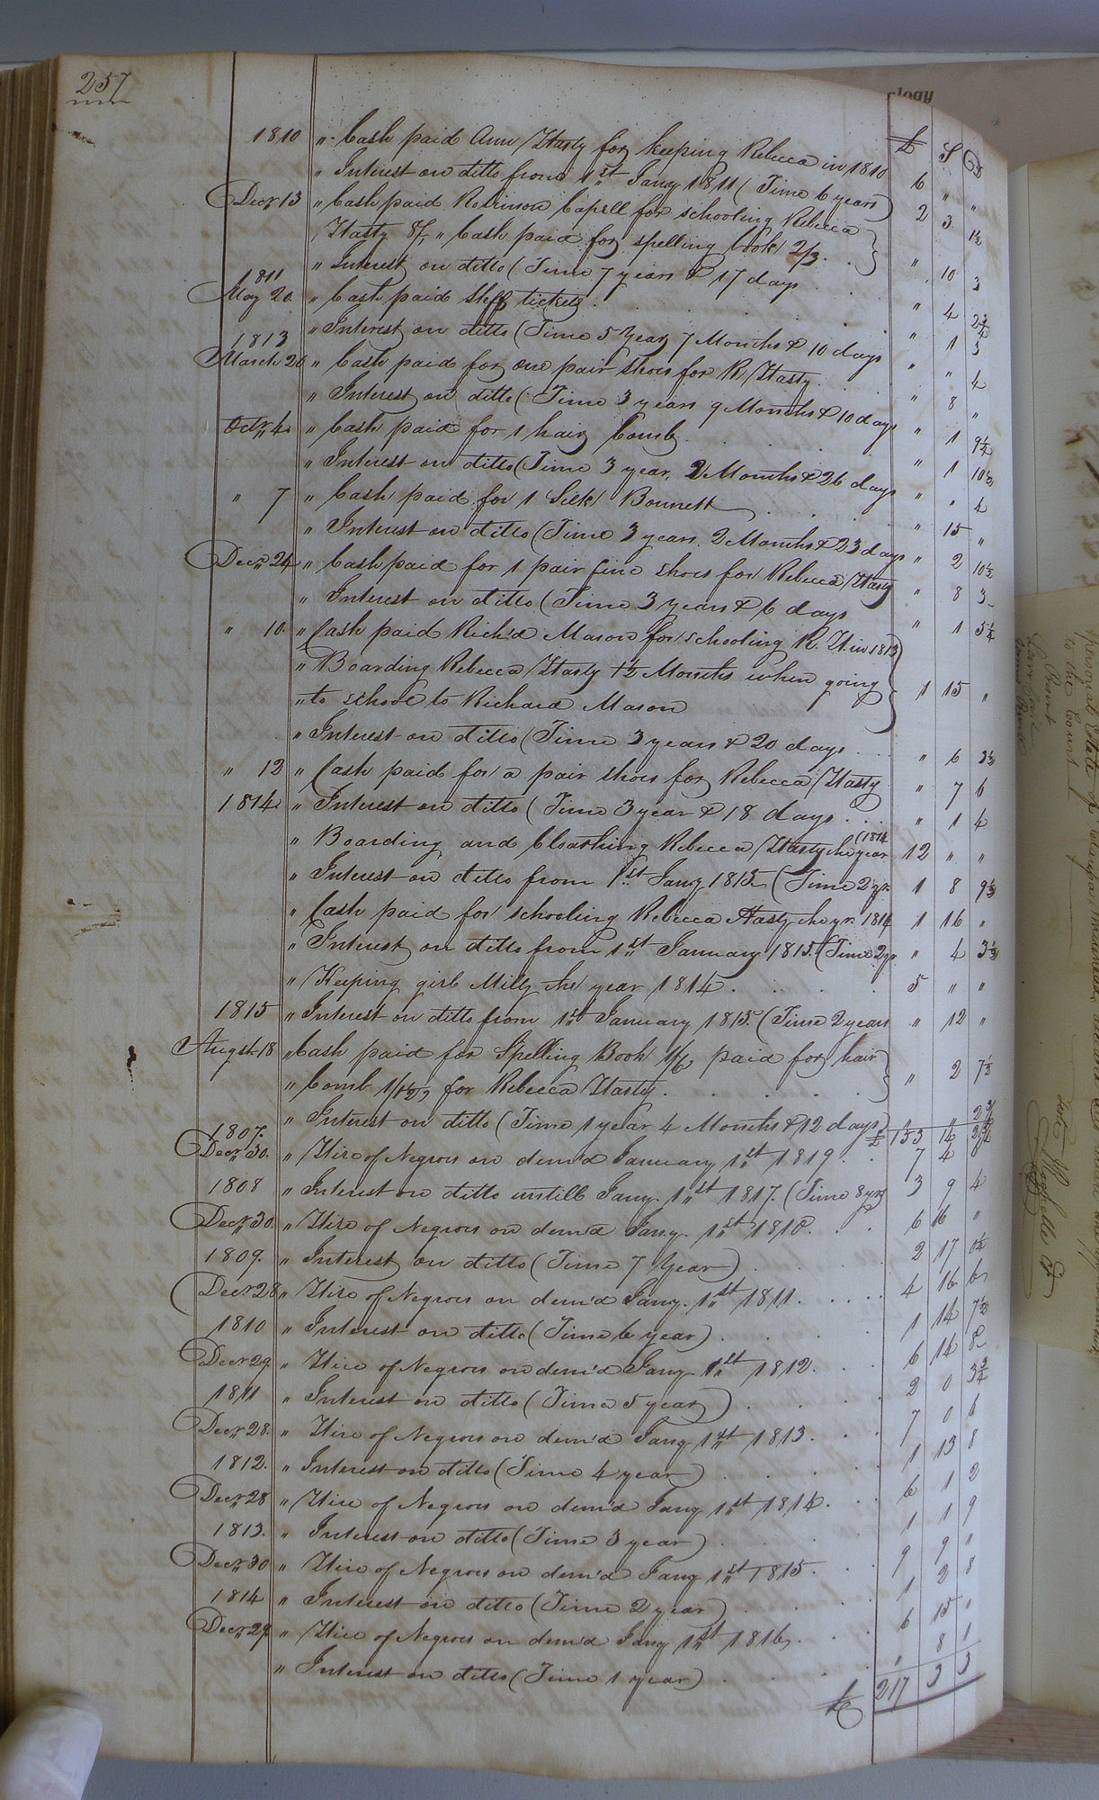 257
£ S D
1810 " Cash paid Ann Hasty for keeping Rebecca in 1810 6 " "
" Interest on ditto from 1st Jany 1811 (Time 6 years) 2 3 1½
Decr 13 " Cash paid Robinson Capell for schooling Rebecca
Hasty 8/, " Cash paid for spelling book 2/3 " 10 3
" Interest on ditto (Time 7 years & 17 days " 4 2¾
1811
May 20 " Cash paid tickets " 1 3
" Interest on ditto (Time 5 Year 7 Months & 10 days " " 4
1813
March 20 " Cash paid for one pair shoes for R Hasty " 8 "
" Interest on ditto (Time 3 years 9 Months & 10 days " 1 9½
Octr 4 " Cash paid for 1 hair Comb " 1 10½
" Interest on ditto (Time 3 year, 2 Months & 26 days " " 4
" 7 " Cash paid for 1 Silk Bonnett " 15 "
" Interest on ditto (Time 3 years 2 Months & 23 days " 2 10½
Decr 24 " Cash paid for 1 pair fine shoes for Rebecca Hasty " 8 3
" Interest on ditto (Time 3 years & 6 days " 1 5¼
" 10 " Cash paid Richd Mason for schooling R. H in 1813
" Boarding Rebecca Hasty 1½ Months when going
" to school to Richard Mason 1 15 "
" Interest on ditto (Time 3 years & 20 days " 6 3½
" 12 " Cash paid for a pair shoes for Rebecca Hasty " 7 6
1814 " Interest on ditto (Time 3 year & 18 days " 1 4
(1814
" Boarding and Cloathing Rebecca Hasty the year 12 " "
" Interest on ditto from 1st Jany 1815 (Time 2 yr. 1 8 9½
" Cash paid for schooling Rebecca Hasty the yr. 1814 1 16 "
" Interest on ditto from 1st January 1815. (Time 2 yr " 4 3½
" Keeping girl Milly the year 1814 5 " "
1815 " Interest on ditto from 1st January 1815. (Time 2 years " 12 "
Augst 18 " Cash paid for Spelling Book 1/6 paid for hair
" Comb 1/1½ for Rebecca Hasty " 2 7½
" Interest on ditto (Time 1 year 4 Months & 12 days) " " 2¾
£ 153 14
1807.
Decr 30. " Hire of Negroes on dem'd January 1st 1819 7 4 8
1808 " Interest on ditto untill Jany. 1st 1817. (Time 8 yrs 3 9 4
Decr 30 " Hire of Negroes on dem'd Jany 1st 1810. 6 16 "
1809. " Interest on ditto (Time 7 Year) 2 17
Decr 28 " Hire of Negroes on dem'd Jany. 1st 1811. 4 16 6
1810 " Interest on ditto (Time 6 year) 1 14 7½
Decr 29 " Hire of Negroes on dem'd Jany 1st 1812. 6 14 8
1811 " Interest on ditto (Time 5 year) 2 0 3¾
Decr 28. " Hire of Negroes on dem'd Jany 1st 1813. 7 0 6
1812. " Interest on ditto (Time 4 year) 1 13 8
Decr 28 " Hire of Negroes on dem'd Jany 1st 1814. 6 1 2
1813. " Interest on ditto (Time 3 year) 1 1 9
Decr 30 " Hire of Negroes on dem'd Jany 1st 1815. 9 9 "
1814 " Interest on ditto (Time 2 year) 1 2 8
Decr 29 " Hire of Negroes on dem'd Jany 1st 1816, 6 15 "
" Interest on ditto (Time 1 year) " 8 1
£ 217 3 3